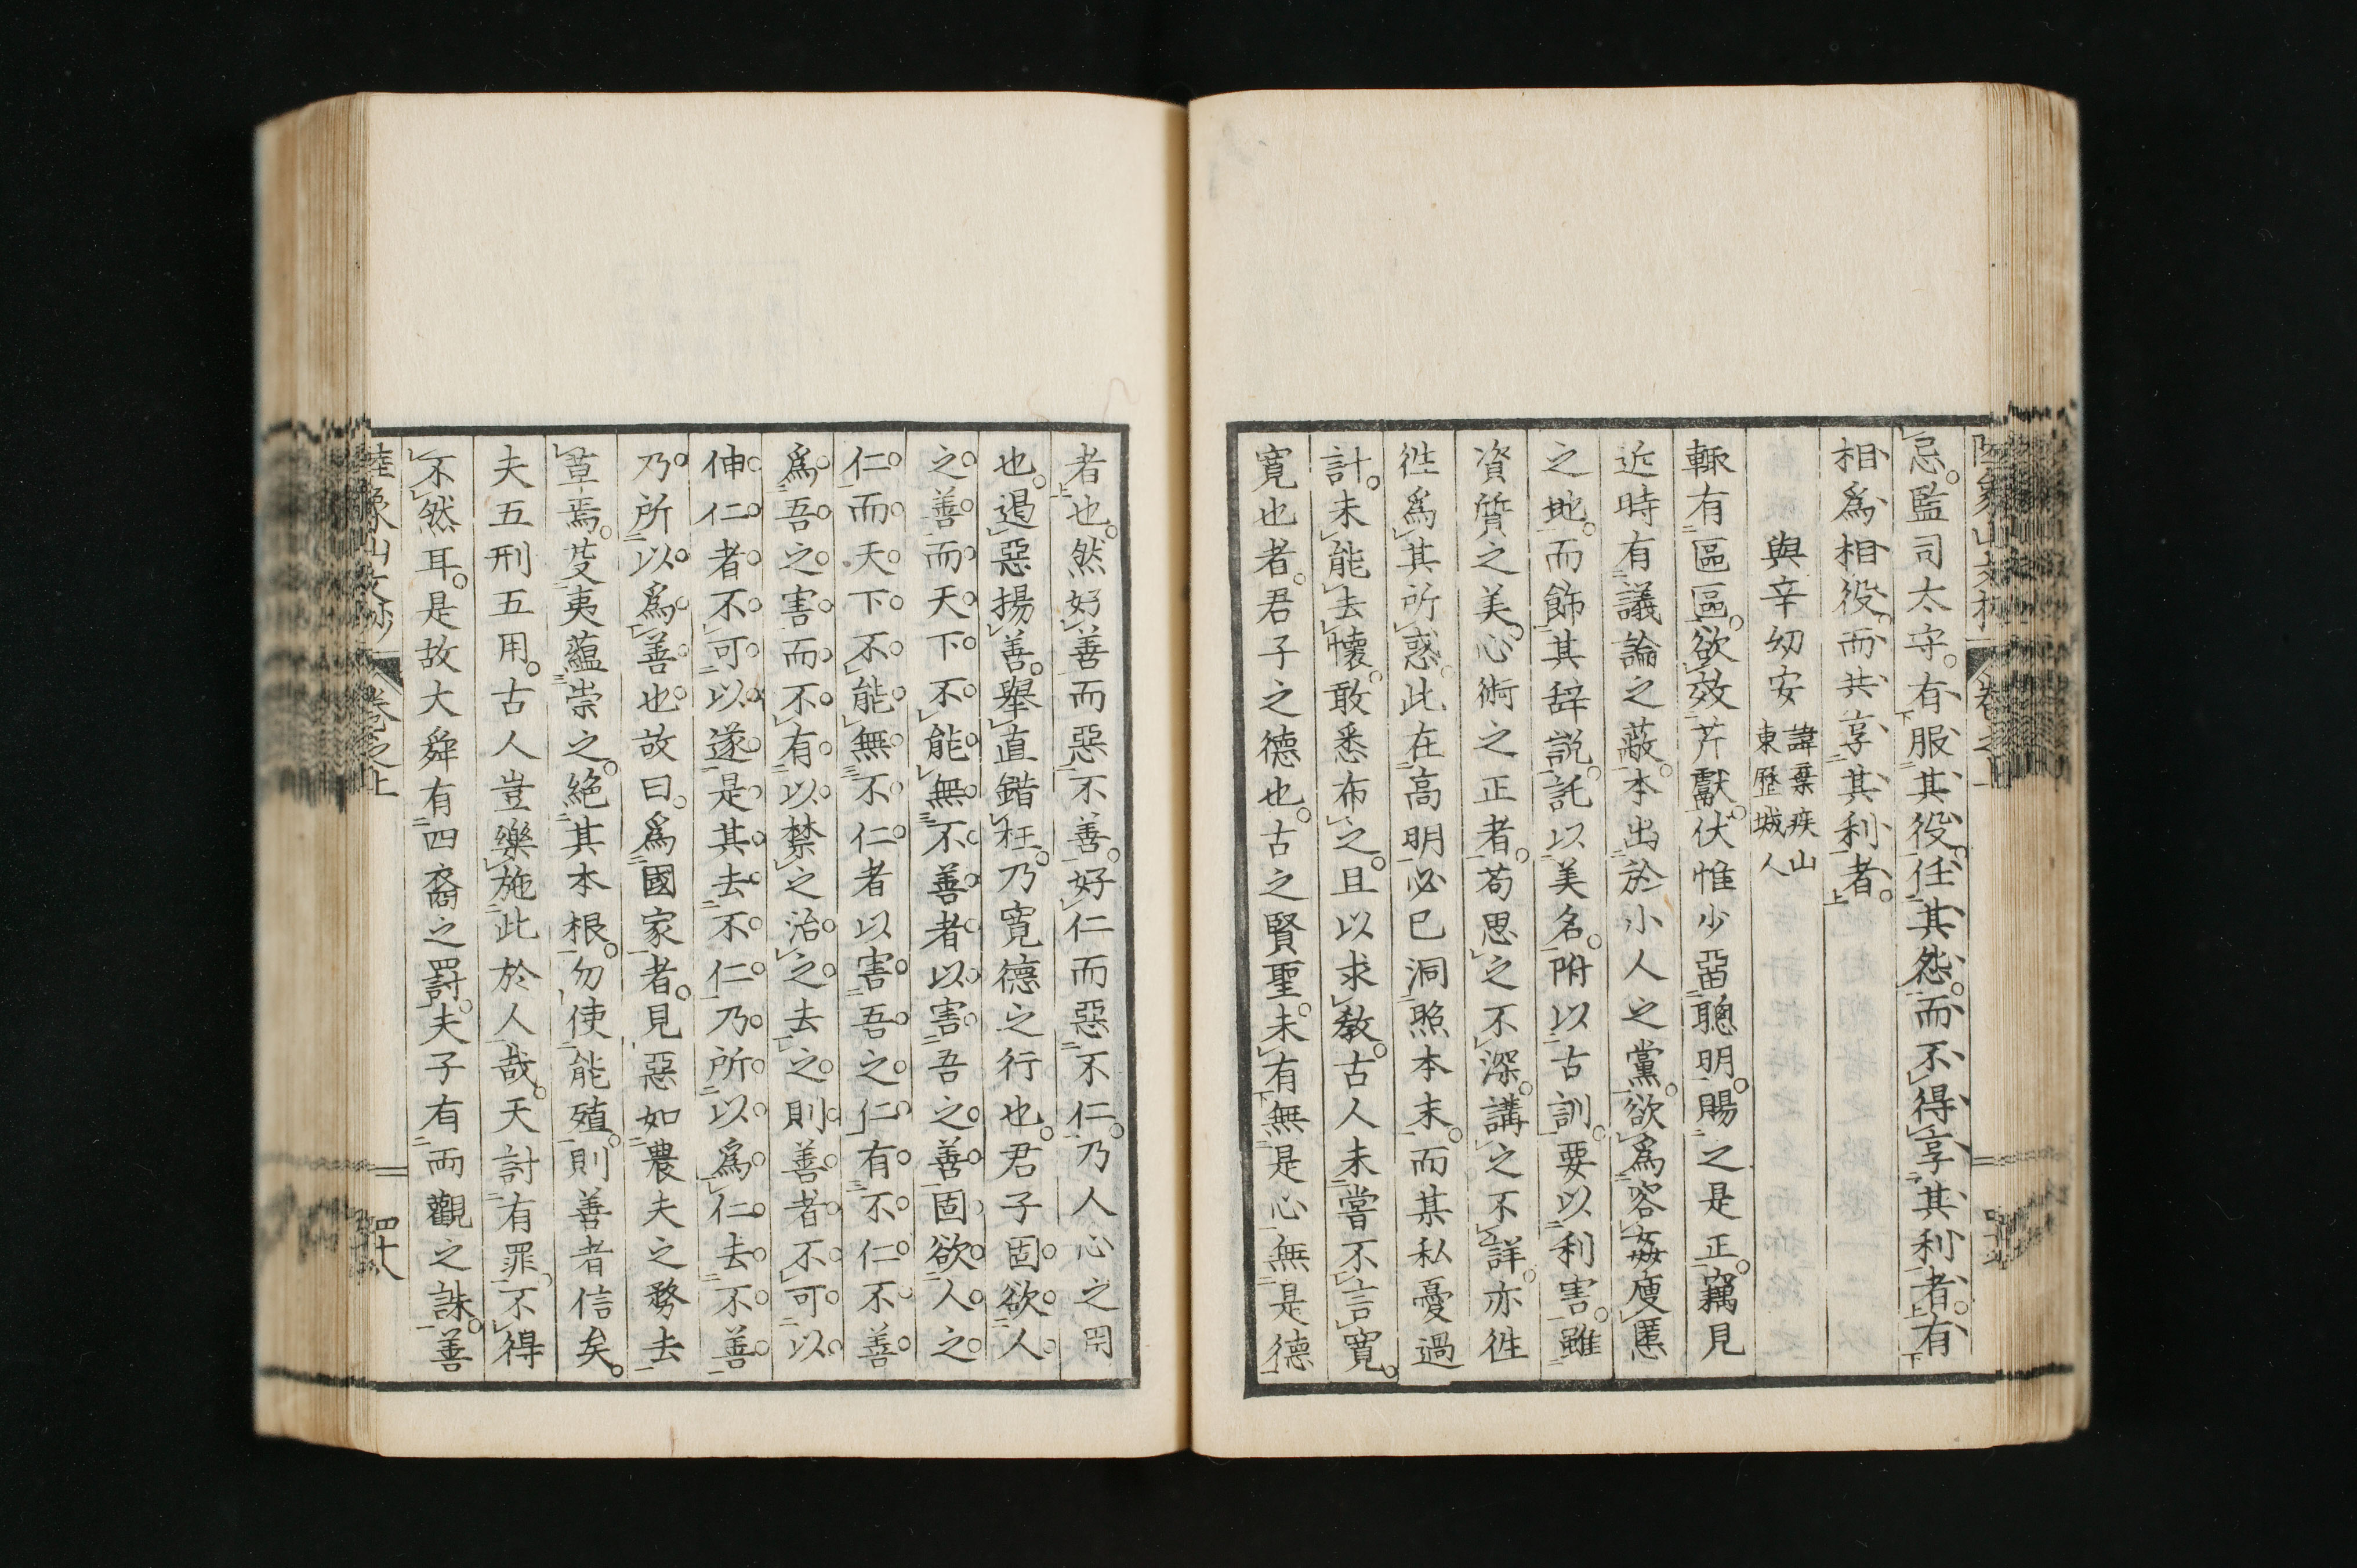 忌。監司太守。有服其役。任其怨。而不得享其利者。有
相爲相役。而共享其利者。
與辛幼安 諱棄疾山東歷城人
輒有區區。欲效芹獻。伏惟少畱聰明。賜之是正。竊見
近時有議論之蔽。本出於小人之黨。欲爲容姦廋慝
之地。而飾其辞説。託以美名。附以古訓。要以利害。雖
資質之美。心術之正者。苟思之不深。講之不詳。亦徃
徃爲其所惑。此在高明必已洞照本末。而某私憂過
計。未能去懷。敢悉布之。且以求教。古人未嘗不言寬。
寬也者。君子之德也。古之賢聖。未有無是心無是德
者也。然好善而惡不善。好仁而惡不仁。乃人心之用
也。遏惡揚善。舉直錯枉。乃寬德之行也。君子固欲人
之善。而天下不能無不善者以害吾之善。固欲人之
仁。而天下不能無不仁者以害吾之仁。有不仁不善
爲吾之害。而不有以禁之治之去之。則善者不可以
伸。仁者不可以遂。是其去不仁。乃所以爲仁。去不善。
乃所以爲善也。故曰。爲國家者。見惡如農夫之務去
草焉。芟夷蘊崇之。絶其本根。勿使能殖。則善者信矣。
夫五刑五用。古人豈樂施此於人哉。天討有罪。不得
不然耳。是故大舜有四裔之罸。夫子有兩觀之誅。善
陸象山文抄 卷之上 四十八